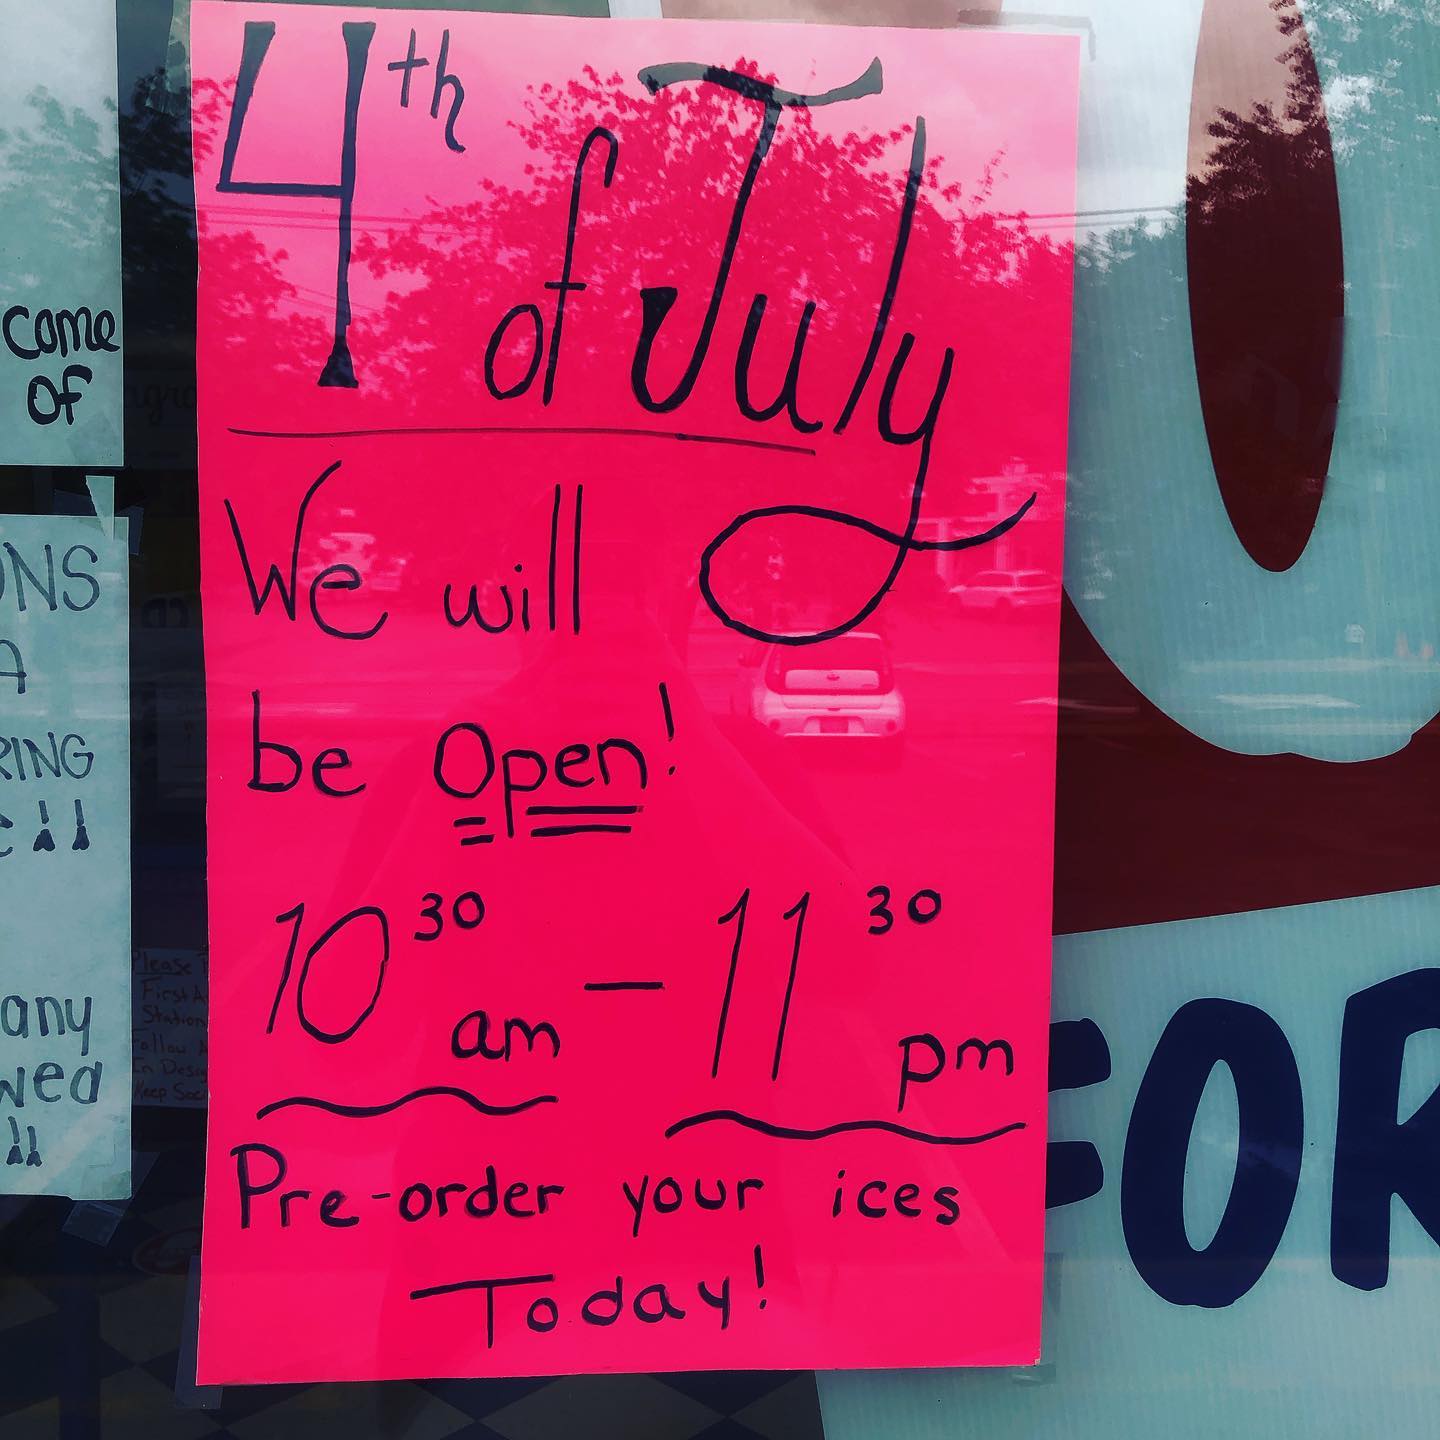 4th of July
We will
be Open!
10 30 am – 11 30 pm
Pre-order your ices
Today!
come
OF
ONS
A
RING
!!
any
wed
!!
Please
First
Station
Follow
In
Keep
FOR